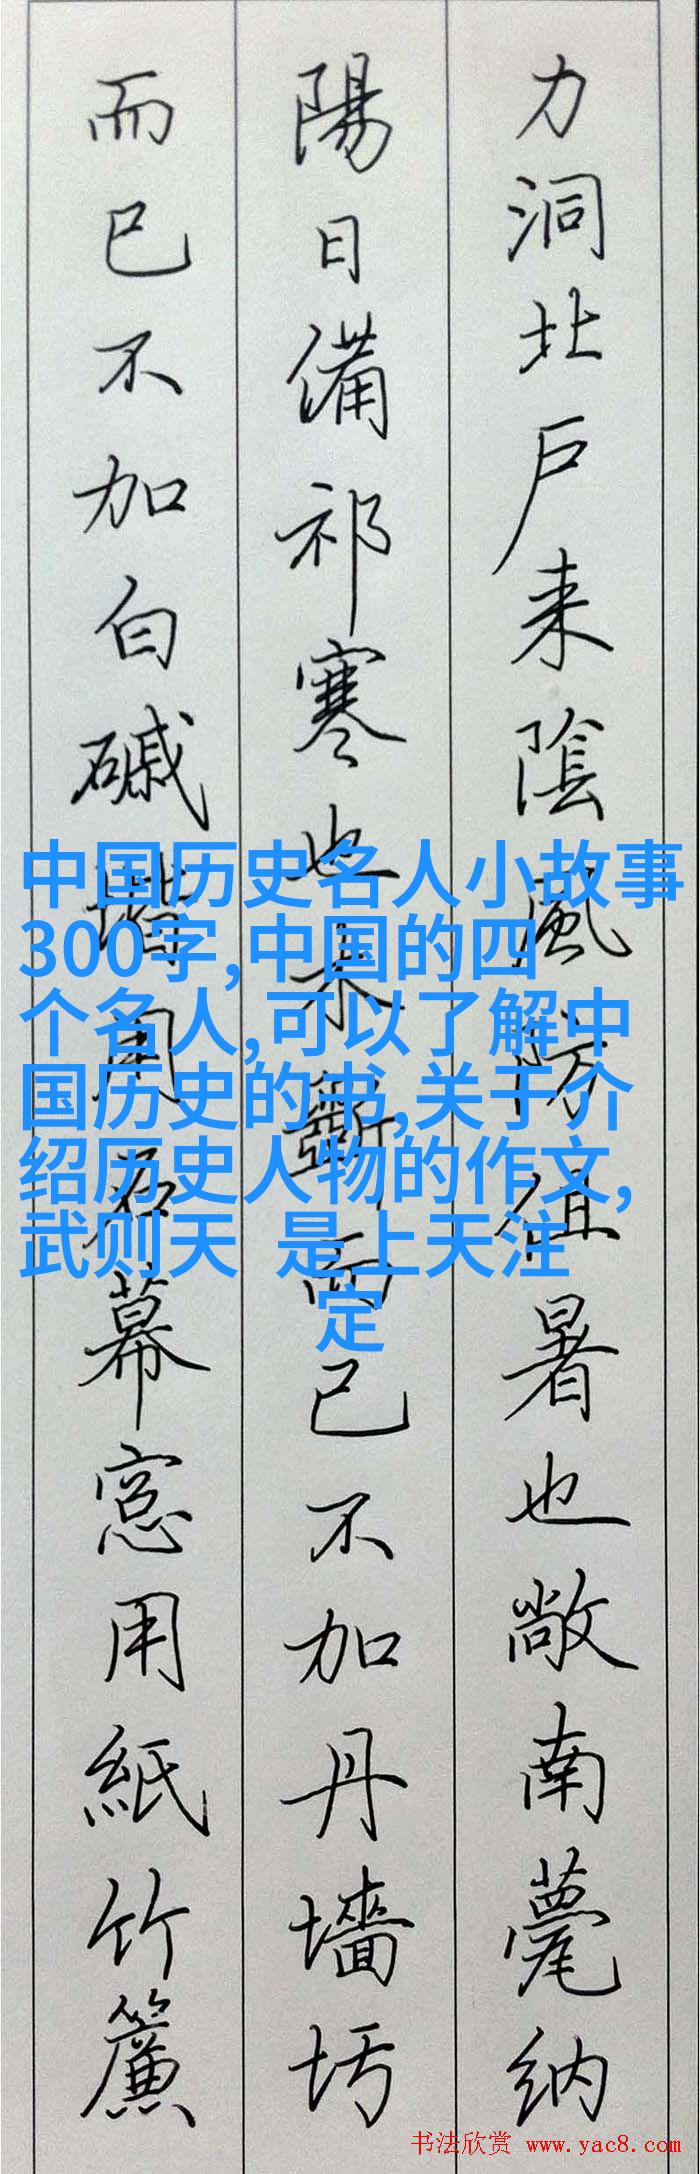 力洞北戶来陰風防徂暑也敞南甍纳
陽日備祁寒也木斲而已不加丹墻圬
而已不加白磩堦用石幕窓用紙竹簾
中国历史名人小故事
300字,中国的四
个名人,可以了解中
国历史的书,关于介
绍历史人物的作文,
武则天 是上天注
定
书法欣赏 www.yac8.com